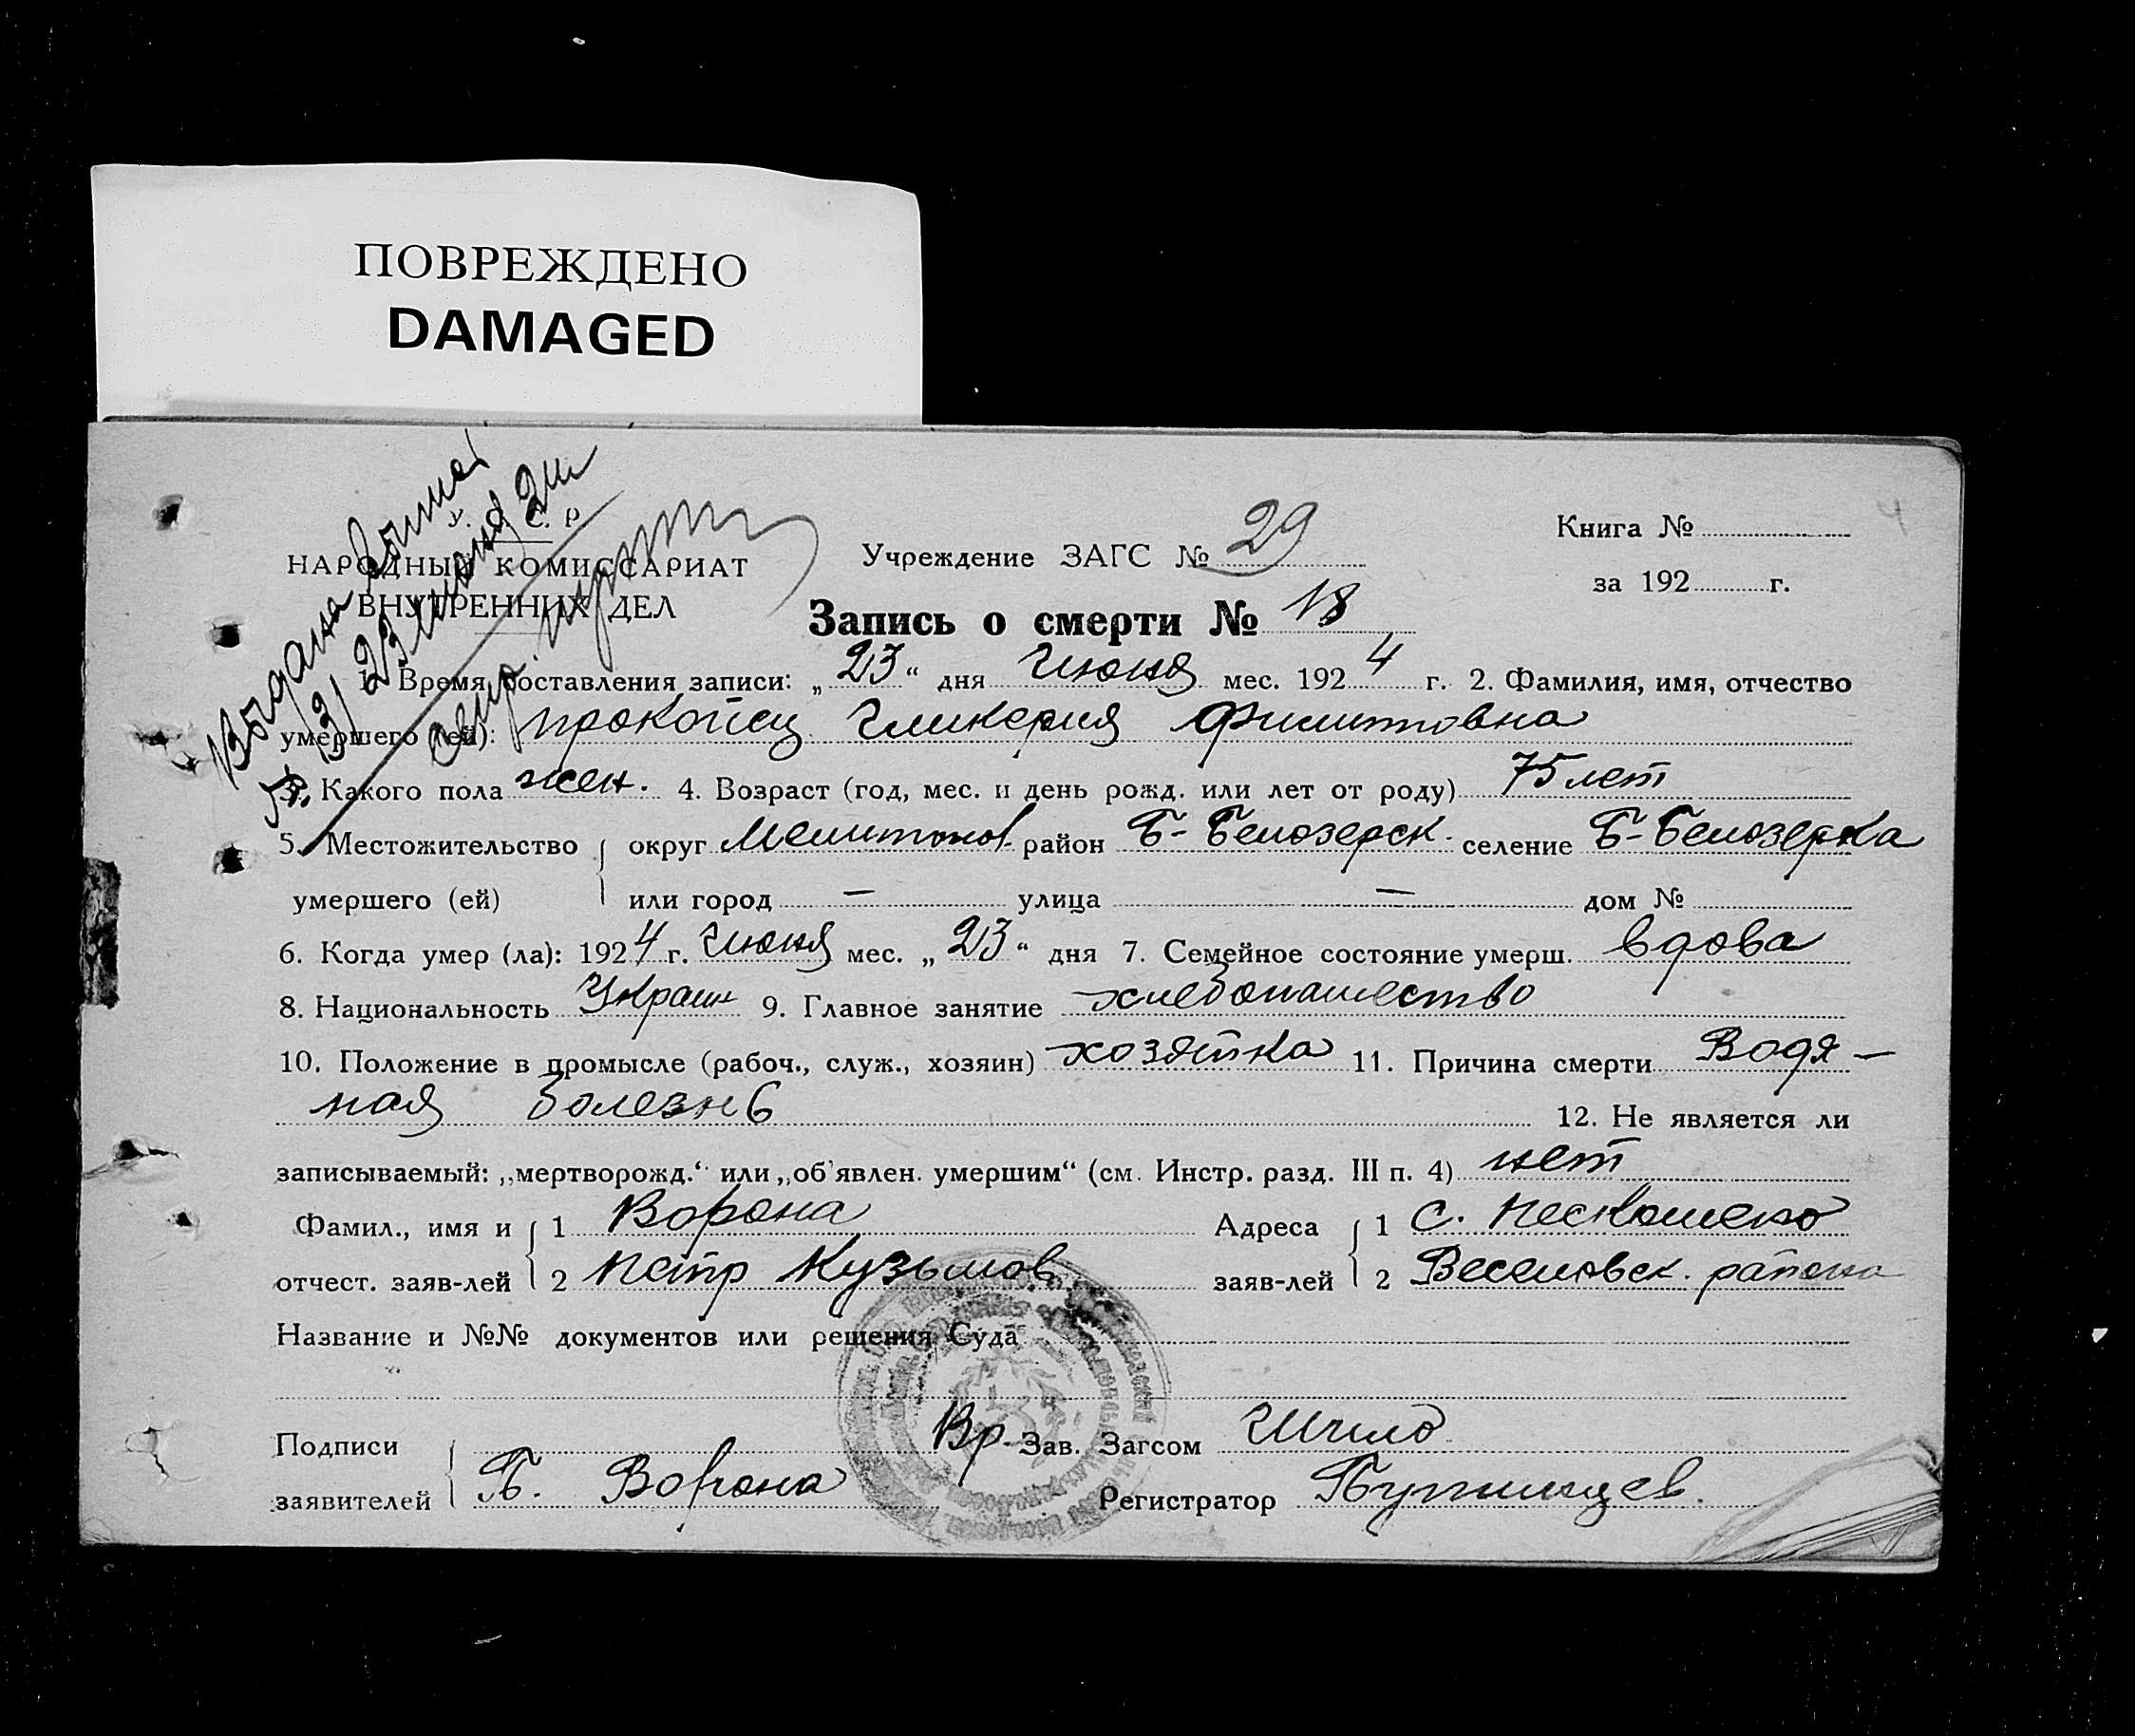 ПОВРЕЖДЕНО
DAMAGED
У. С. С. Р
НАРОДНЫЙ КОМИССАРИАТ
ВНУТРЕННИХ ДЕЛ
Выдана
23 июня 24
Учреждение ЗАГС № 29
Книга №
за 192 г.
4
Запись о смерти № 18
1. Время составления записи: „23“ дня Июня мес. 1924 г. 2. Фамилия, имя, отчество
умершего (ей): Прокопец Гликерия Филиповна
3. Какого пола жен. 4. Возраст (год, мес. и день рожд. или лет от роду) 75 лет
5. Местожительство округ Мелитопол. район Б-Белозерск. селение Б-Белозерка
умершего (ей) или город — улица — дом №
6. Когда умер (ла): 1924 г. Июня мес. „23“ дня 7. Семейное состояние умерш. вдова
8. Национальность Украин 9. Главное занятие хлебопашество
10. Положение в промысле (рабоч., служ., хозяин) хозяйка 11. Причина смерти Водя-
ная болезнь 12. Не является ли
записываемый: „мертворожд.“ или „об'явлен. умершим“ (см. Инстр. разд. III п. 4) нет
Фамил., имя и 1 Ворона Адреса 1 с.
отчест. заяв-лей 2 Петр Кузьмов заяв-лей 2 Веселовск. района
Название и №№ документов или решения Суда
Подписи Вр. Зав. Загсом Шило
заявителей П. Ворона Регистратор